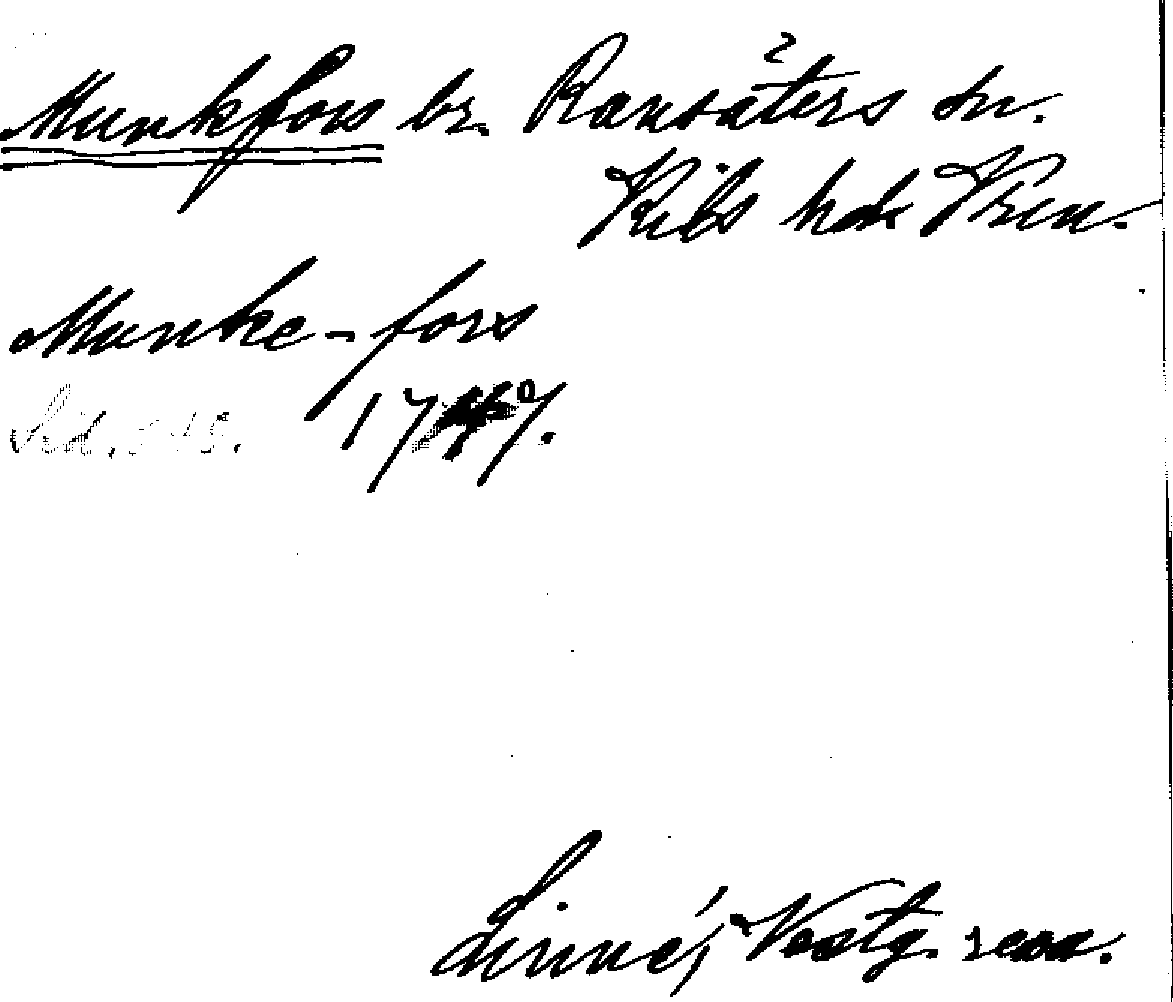 Munkfors br. Ransäters sn.
Kils hd Vrm.
Munke-fors
Sid. 248. 1747.
Linné, Vestg. resa.